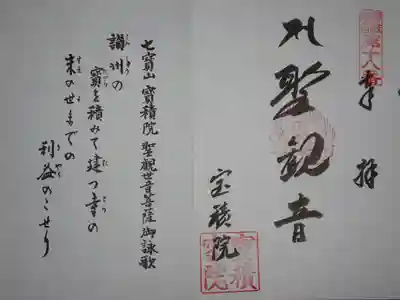 奉拝
聖観音
宝積院
七寶山 寶積院 聖觀世音菩薩 御詠歌
讃州の
寶を積みて建つ寺の
末の世までの
利益のこせり